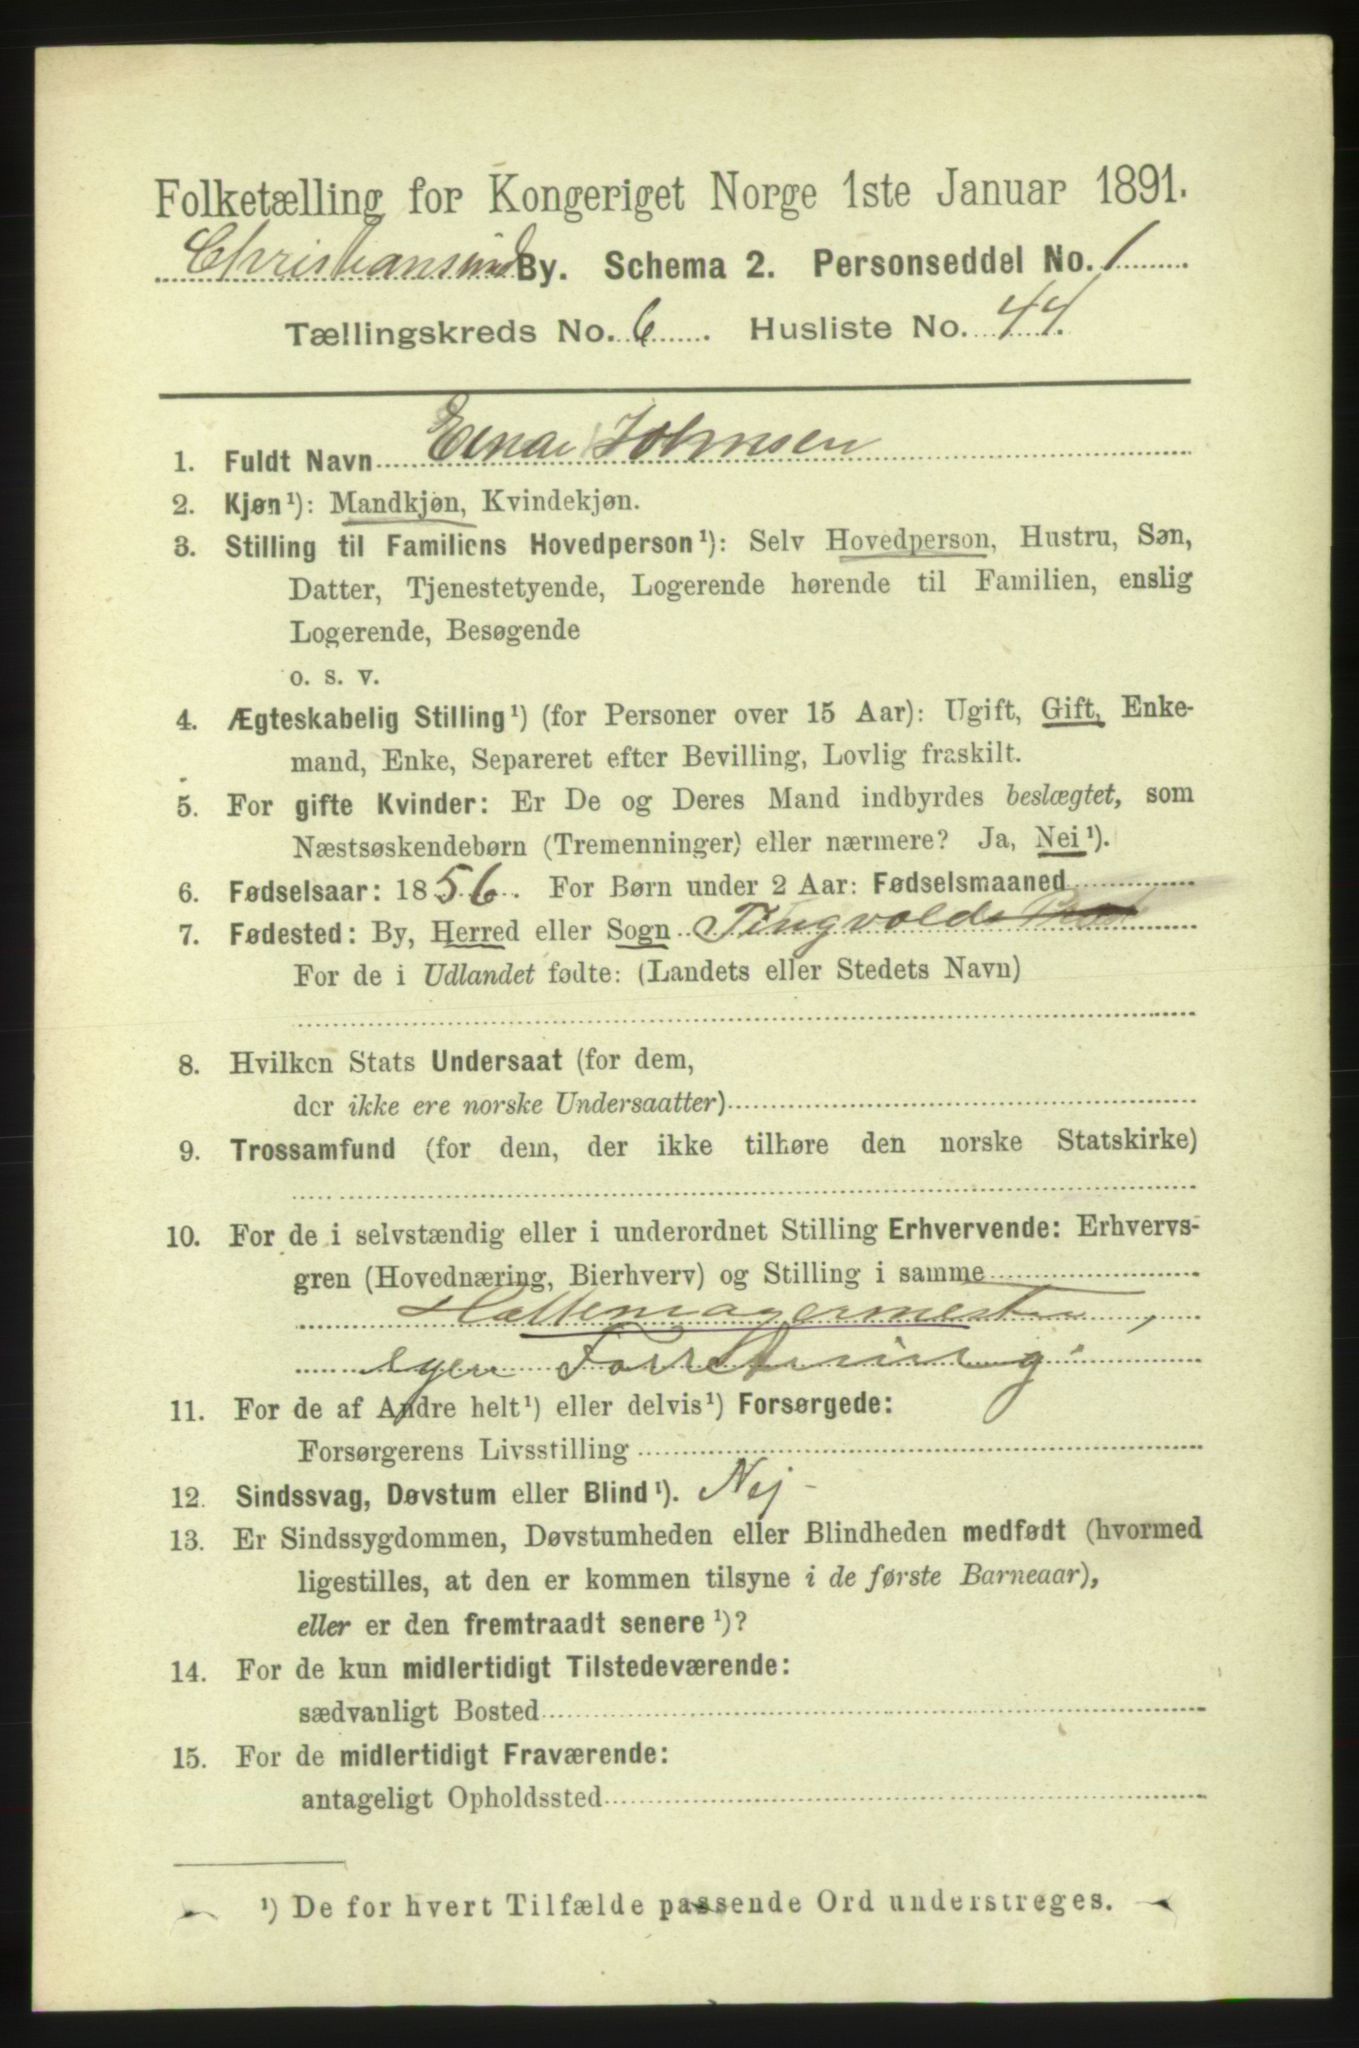 Folketælling for Kongeriget Norge 1ste Januar 1891.
Christiansund By. Schema 2. Personseddel No. 1
Tællingskreds No. 6. Husliste No. 44.
1. Fuldt Navn Einar Johnsen
2. Kjøn¹): Mandkjøn, Kvindekjøn.
3. Stilling til Familiens Hovedperson¹): Selv Hovedperson, Hustru, Søn,
Datter, Tjenestetyende, Logerende hørende til Familien, enslig
Logerende, Besøgende
o. s. v.
4. Ægteskabelig Stilling¹) (for Personer over 15 Aar): Ugift, Gift, Enke-
mand, Enke, Separeret efter Bevilling, Lovlig fraskilt.
5. For gifte Kvinder: Er De og Deres Mand indbyrdes beslægtet, som
Næstsøskendebørn (Tremenninger) eller nærmere? Ja, Nei¹).
6. Fødselsaar: 1856. For Børn under 2 Aar: Fødselsmaaned
7. Fødested: By, Herred eller Sogn Tingvolds
For de i Udlandet fødte: (Landets eller Stedets Navn)
8. Hvilken Stats Undersaat (for dem,
der ikke ere norske Undersaatter)
9. Trossamfund (for dem, der ikke tilhøre den norske Statskirke)
10. For de i selvstændig eller i underordnet Stilling Erhvervende: Erhvervs-
gren (Hovednæring, Bierhverv) og Stilling i samme
Hattemagermester,
egen Forretning
11. For de af Andre helt¹) eller delvis¹) Forsørgede:
Forsørgerens Livsstilling
12. Sindssvag, Døvstum eller Blind¹). Nej -
13. Er Sindssygdommen, Døvstumheden eller Blindheden medfødt (hvormed
ligestilles, at den er kommen tilsyne i de første Barneaar),
eller er den fremtraadt senere¹)?
14. For de kun midlertidigt Tilstedeværende:
sædvanligt Bosted
15. For de midlertidigt Fraværende:
antageligt Opholdssted
¹) De for hvert Tilfælde passende Ord understreges.